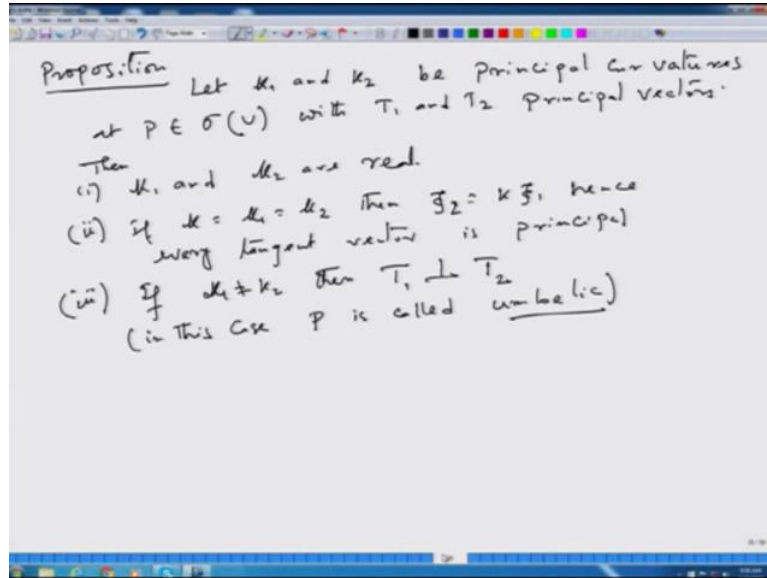 Proposition
Let κ₁ and κ₂ be principal curvatures
at P ∈ σ(U) with T₁ and T₂ principal vectors.
Then
(i) κ₁ and κ₂ are real.
(ii) if κ = κ₁ = κ₂ then ℱ₂ = κ ℱ₁ hence
every tangent vector is principal
(iii) If κ₁ ≠ κ₂ then T₁ ⊥ T₂
(in this case P is called umbelic)